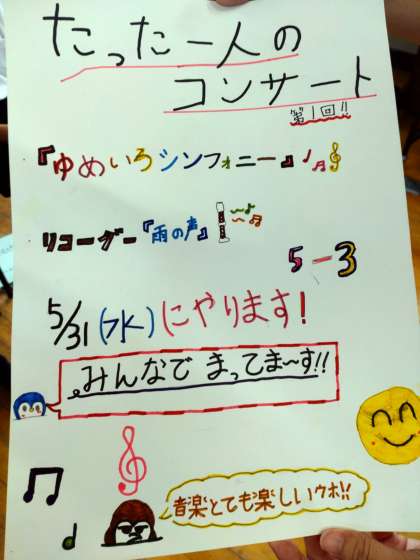 たった一人の
コンサート
第1回!!
『ゆめいろシンフォニー』
リコーダー『雨の声』
5-3
5/31(水)にやります!
みんなで まってま〜す!!
音楽とても楽しいウホ!!